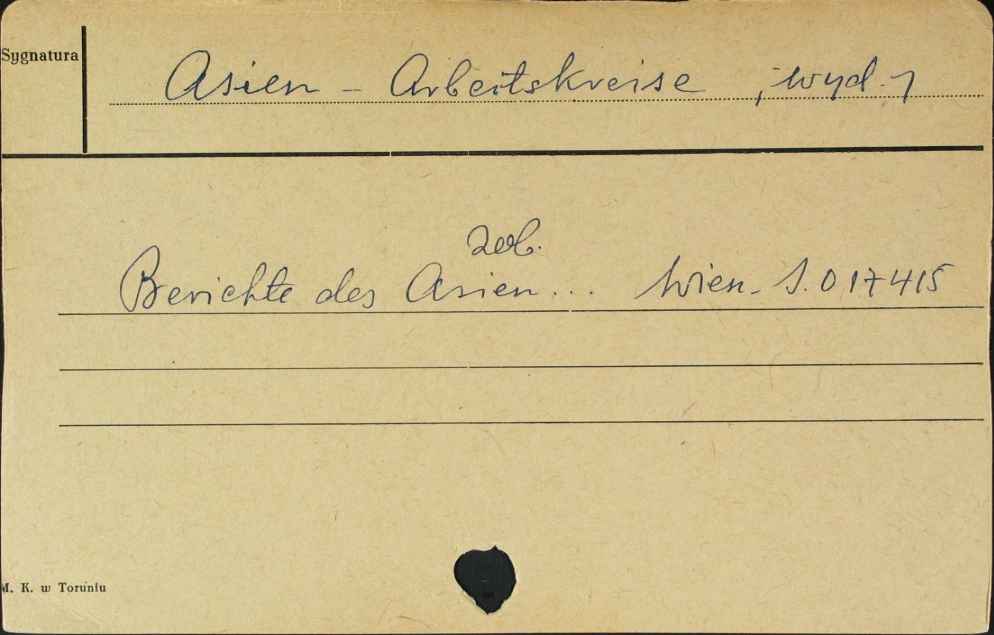 Sygnatura
Asien - Arbeitskreise , wyd.
zob.
Berichte des Asien... Wien. S. 017415
M. K. w Toruniu